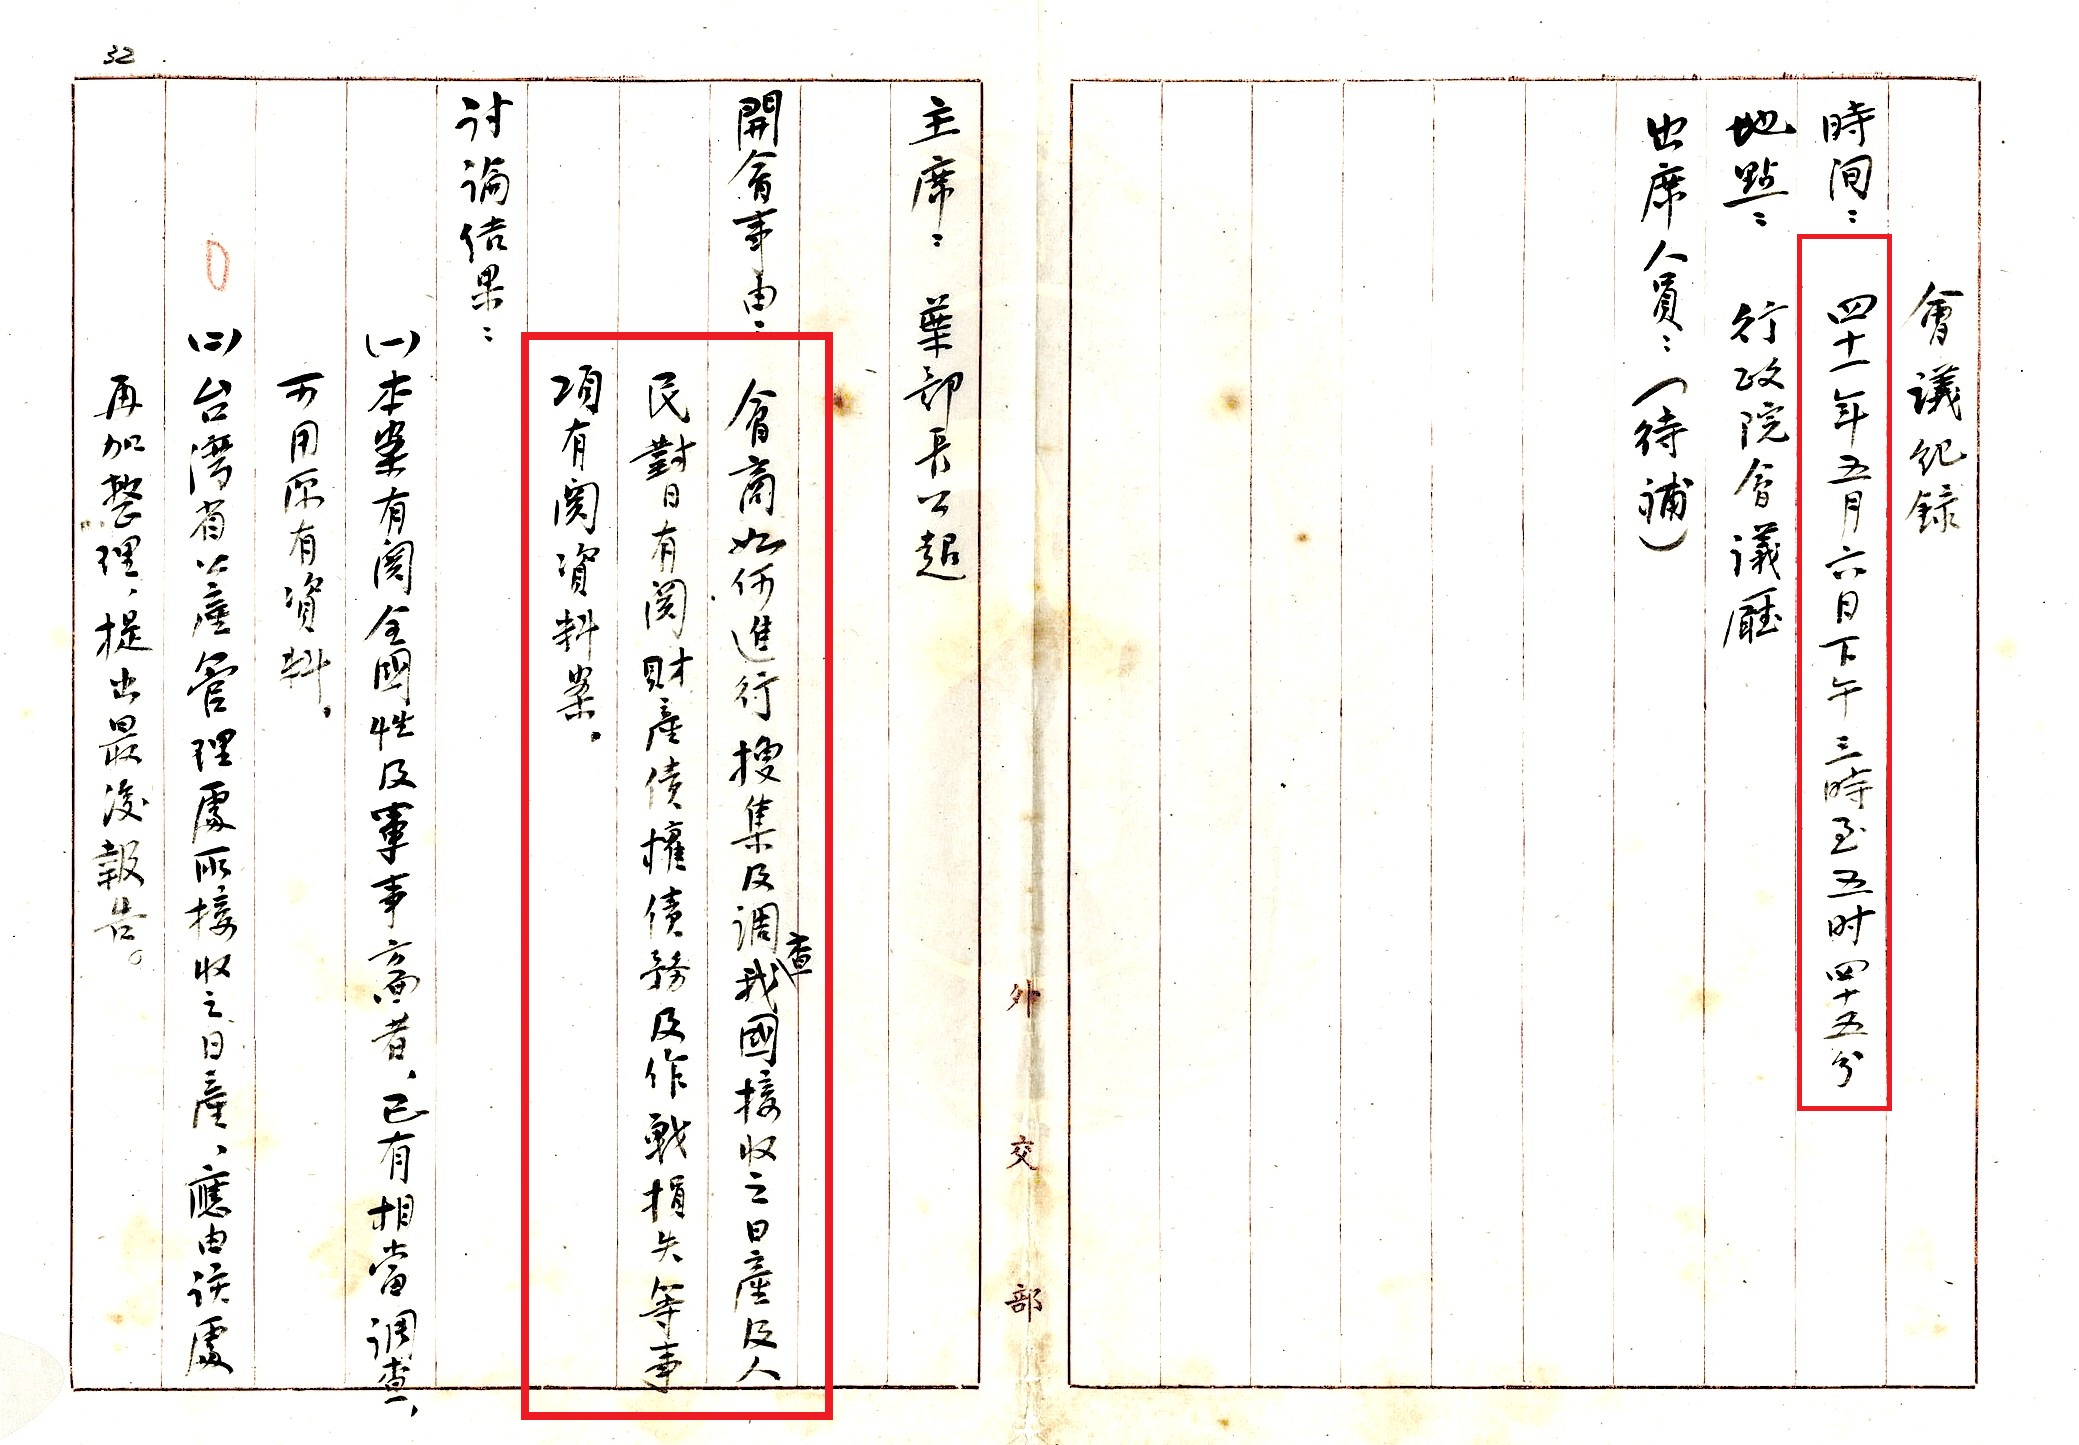 會議紀録
時间：四十一年五月六日下午三時至五时四十五分
地點：行政院會議廳
出席人員：（待補）
外交部
主席：葉部長公超
開會事由：會商如何進行搜集及調查我國接收之日產及人
民對日有関財產債權債務及作戰損失等事
項有関資料案。
讨論结果：
㈠本案有関全國性及軍事方面者，已有相當调查，
可用原有資料。
㈡台灣省公產管理處所接收之日產，應由该處
再加整理，提出最後報告。
32